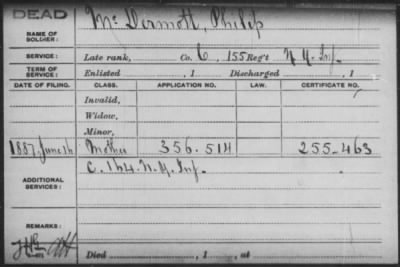 DEAD
NAME OF SOLDIER: McDermott, Philip
SERVICE: Late rank, Co. C, 155 Reg't N.Y. Inf.
TERM OF SERVICE: Enlisted , 1 Discharged , 1
DATE OF FILING. CLASS. APPLICATION NO. LAW. CERTIFICATE NO.
Invalid,
Widow,
Minor,
1887, June 16 Mother 356.514 255-463
ADDITIONAL SERVICES: C. 164. N.Y. Inf.
REMARKS:
Died , 1 , at